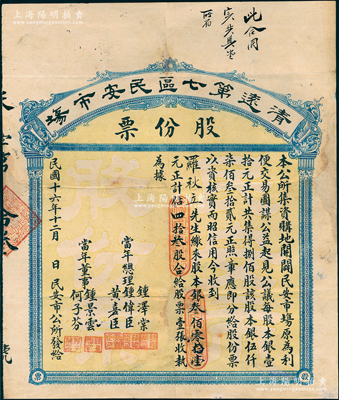 上海阳明拍卖
此合同
清遠第七區民安市場
股份票
本公所集資購地開闢民安市場原為利
便交易圖謀公益起見公議每股本銀壹
拾元正計共集得捌佰股該股本銀伍仟
柒佰叁拾貳元正照章應即分給股份票
以資核實而昭信用今收到
羅秋立先生繳來股本銀叁佰零拾壹
元正計伍四拾叁股合給股票壹張收執
為據
當年總理 鍾澤棠 鍾偉臣 黃養臣
當年董事 鍾景雲 何子芬
民國十六年十二月 日 民安市公所發給
股
票